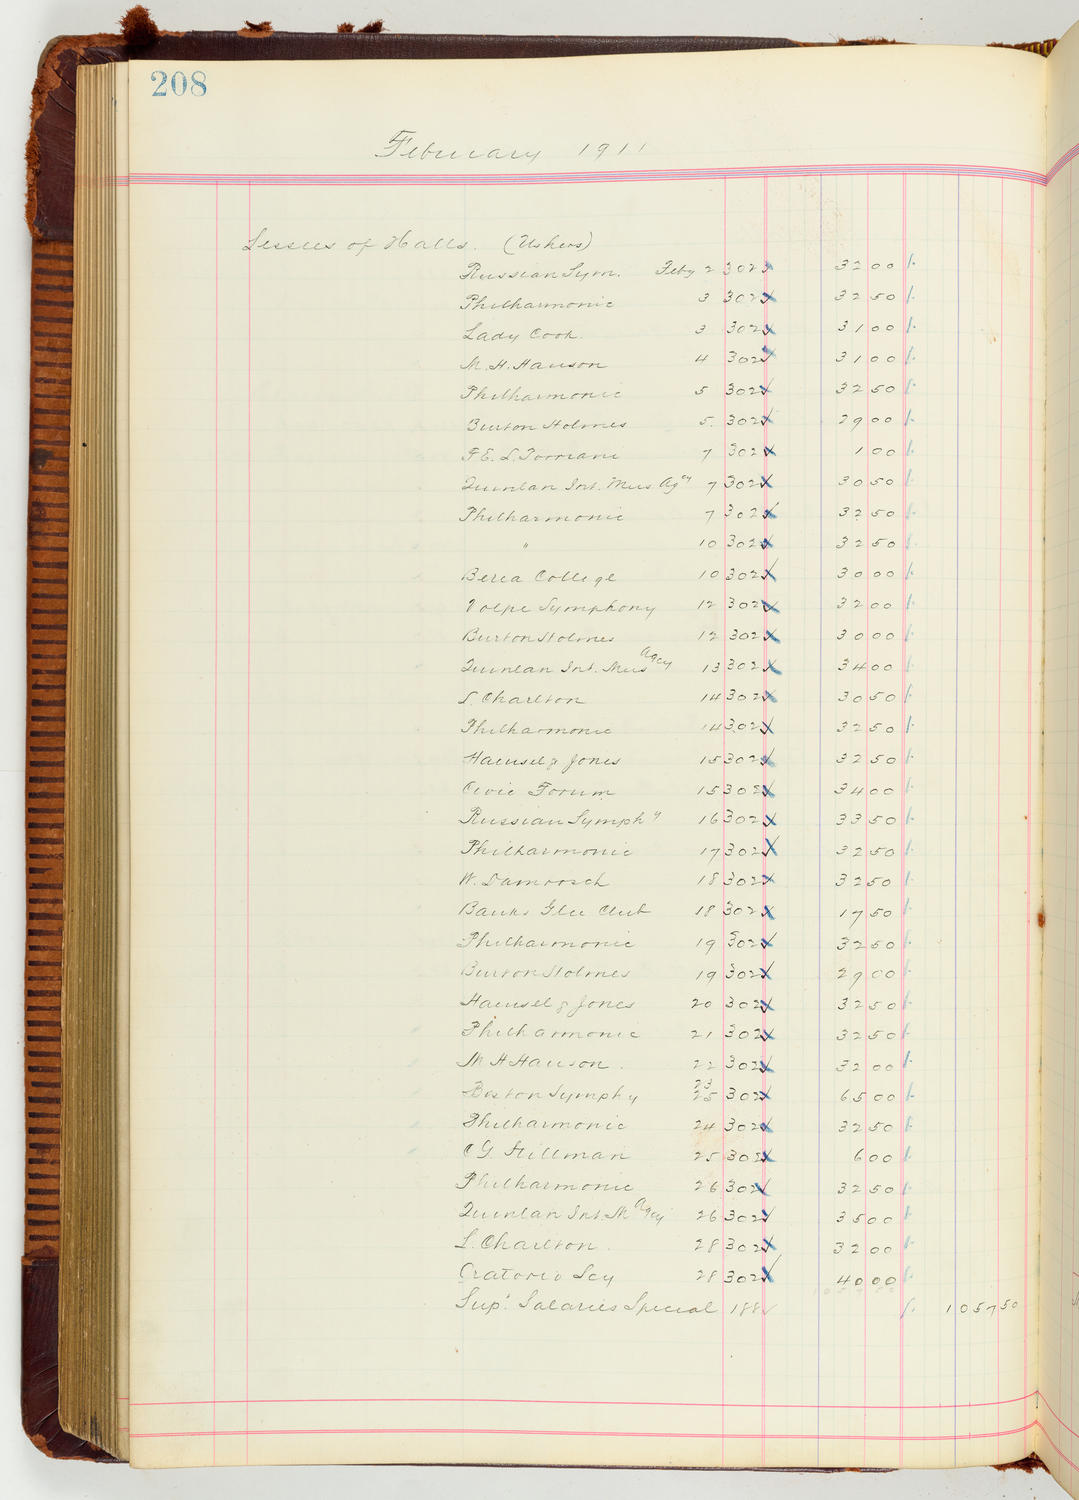 208
February 1911
Lessees of Halls. (Ushers)
Russian Sym. Feby 2 302 32 00
Philharmonic 3 302 32 50
Lady Cook. 3 302 31 00
M. H. Hanson 4 302 31 00
Philharmonic 5 302 32 50
Burton Holmes 5. 302 29 00
F E. L. Torriani 7 302 1 00
Quinlan Int. Mus Agcy 7 302 30 50
Philharmonic 7 302 32 50
" 10 302 32 50
Berea College 10 302 30 00
Volpe Symphony 12 302 32 00
Burton Holmes 12 302 30 00
Quinlan Int. Mus Agcy 13 302 34 00
L. Charlton 14 302 30 50
Philharmonic 14 302 32 50
Haensel & Jones 15 302 32 50
Civic Forum 15 302 34 00
Russian Symphy 16 302 33 50
Philharmonic 17 302 32 50
W. Damrosch 18 302 32 50
Banks Glee Club 18 302 17 50
Philharmonic 19 302 32 50
Burton Holmes 19 302 29 00
Haensel & Jones 20 302 32 50
Philharmonic 21 302 32 50
M H Hanson. 22 302 32 00
Boston Symphy 23 25 302 65 00
Philharmonic 24 302 32 50
C G. Hillman 25 302 6 00
Philharmonic 26 302 32 50
Quinlan Int. M Agcy 26 302 35 00
L. Charlton. 28 302 32 00
Oratorio Scy 28 302 40 00
Supt. Salaries Special 188 1057 50